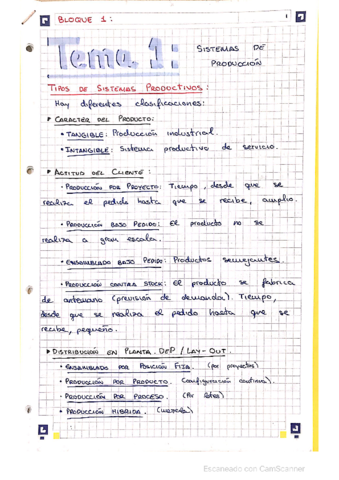 BLOQUE 1:
Tema 1: SISTEMAS DE
PRODUCCIÓN
TIPOS DE SISTEMAS PRODUCTIVOS:
Hay diferentes clasificaciones:
▸ CARACTER DEL PRODUCTO:
• TANGIBLE: Producción industrial.
• INTANGIBLE: Sistema productivo de servicio.
▸ ACTITUD DEL CLIENTE:
• PRODUCCIÓN POR PROYECTO: Tiempo, desde que se
realiza el pedido hasta que se recibe, amplio.
• PRODUCCIÓN BAJO PEDIDO: El producto no se
realiza a gran escala.
• ENSAMBLADO BAJO PEDIDO: Productos semejantes.
• PRODUCCIÓN CONTRA STOCK: El producto se fabrica
de antemano (previsión de demanda). Tiempo,
desde que se realiza el pedido hasta que se
recibe, pequeño.
▸ DISTRIBUCIÓN EN PLANTA. DeP / LAY-OUT.
• ENSAMBLADO POR POSICIÓN FIJA. (por proyectos)
• PRODUCCIÓN POR PRODUCTO. (configuración continua).
• PRODUCCIÓN POR PROCESO. (Por lotes).
• PRODUCCIÓN HIBRIDA. (mezcla)
Escaneado con CamScanner